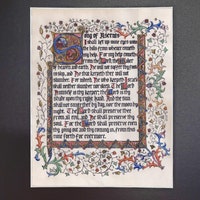 Song of Ascents
I shall lift up mine eyes unto
the hills from whence cometh
my help. For my help cometh
from the Lord, the Maker
of heaven and earth. He will not suffer thy foot
to slip, and He that keepeth thee will not
slumber. For behold, He who keepeth Israel
shall neither slumber nor sleep. The Lord
Himself is thy keeper; the Lord is thy
shade upon thy right hand. And the sun
shall not smite thee by day, nor the moon by
night. The Lord shall preserve thee
from all evil, and He shall preserve thy
soul. For the Lord shall preserve even
thy going out and thy coming in, from that
time forth for evermore.